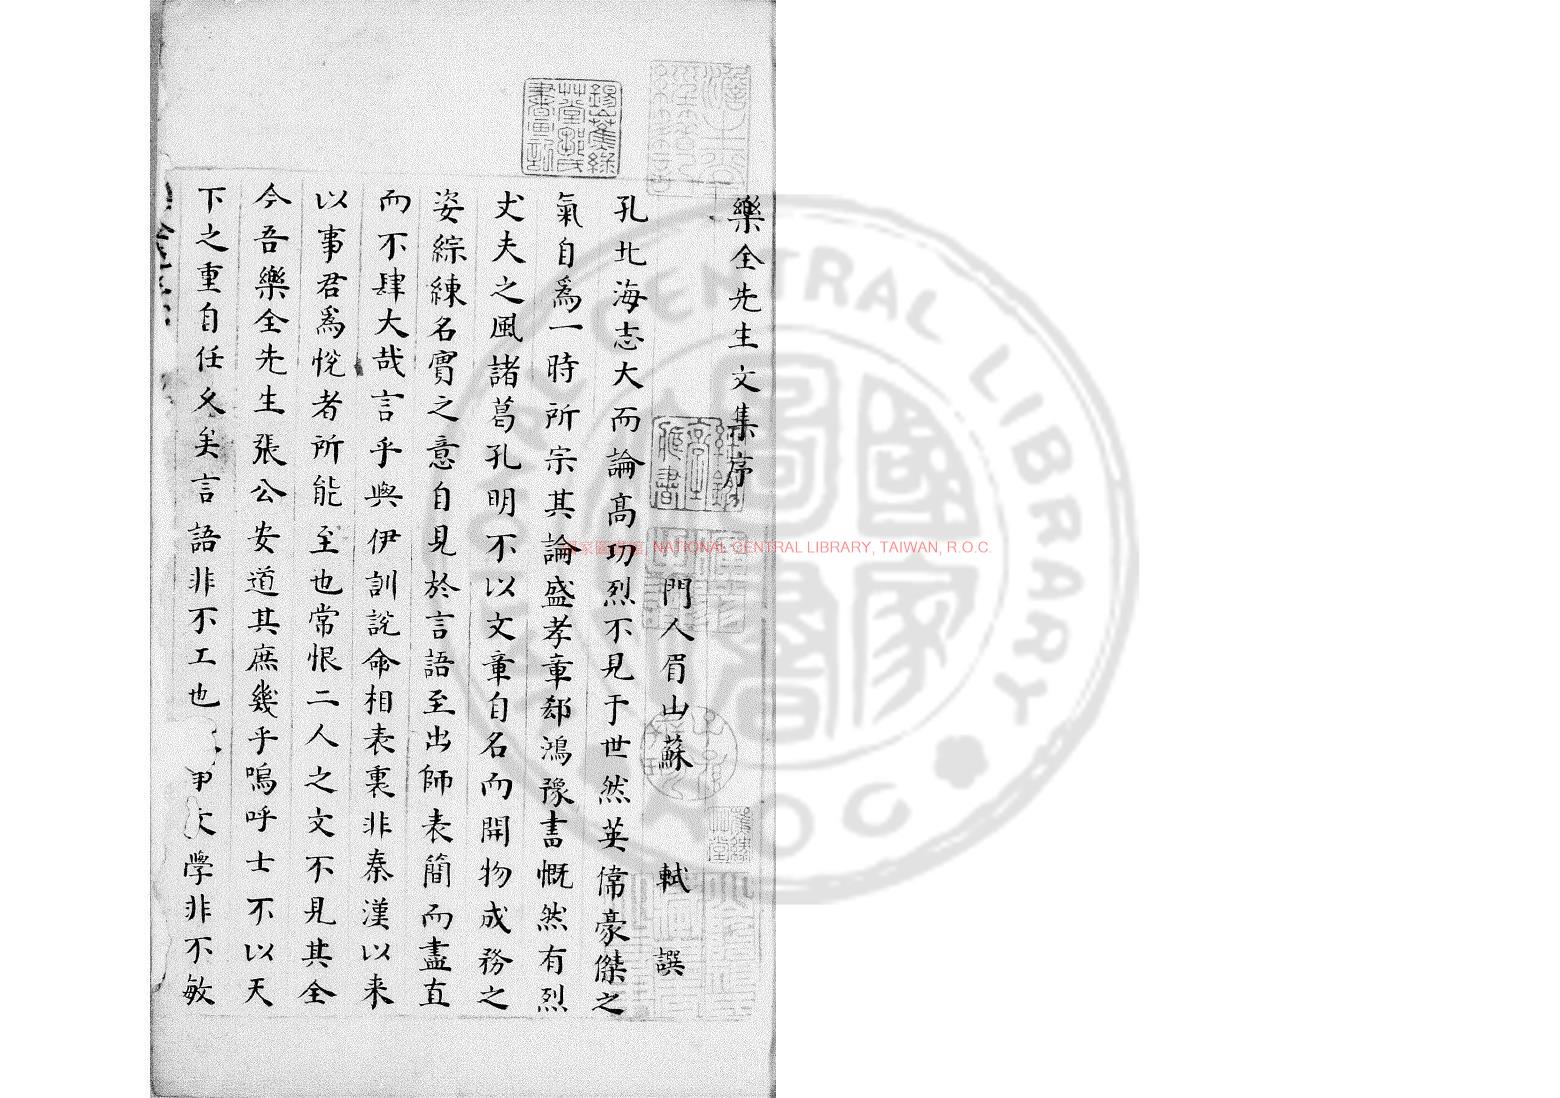 樂全先生文集序
門人眉山蘇軾譔
孔北海志大而論高功烈不見于世然英偉豪傑之
氣自爲一時所宗其論盛孝章郄鴻豫書慨然有烈
丈夫之風諸葛孔明不以文章自名而開物成務之
姿綜練名實之意自見於言語至出師表簡而盡直
而不肆大哉言乎與伊訓說命相表裏非秦漢以来
以事君爲悅者所能至也常恨二人之文不見其全
今吾樂全先生張公安道其庶幾乎嗚呼士不以天
下之重自任久矣言語非不工也文學非不敏
錫山蕉綠草堂鄒氏書畫記
國家圖書館, NATIONAL CENTRAL LIBRARY, TAIWAN, R.O.C.
NATIONAL CENTRAL LIBRARY
ROC
國家圖書